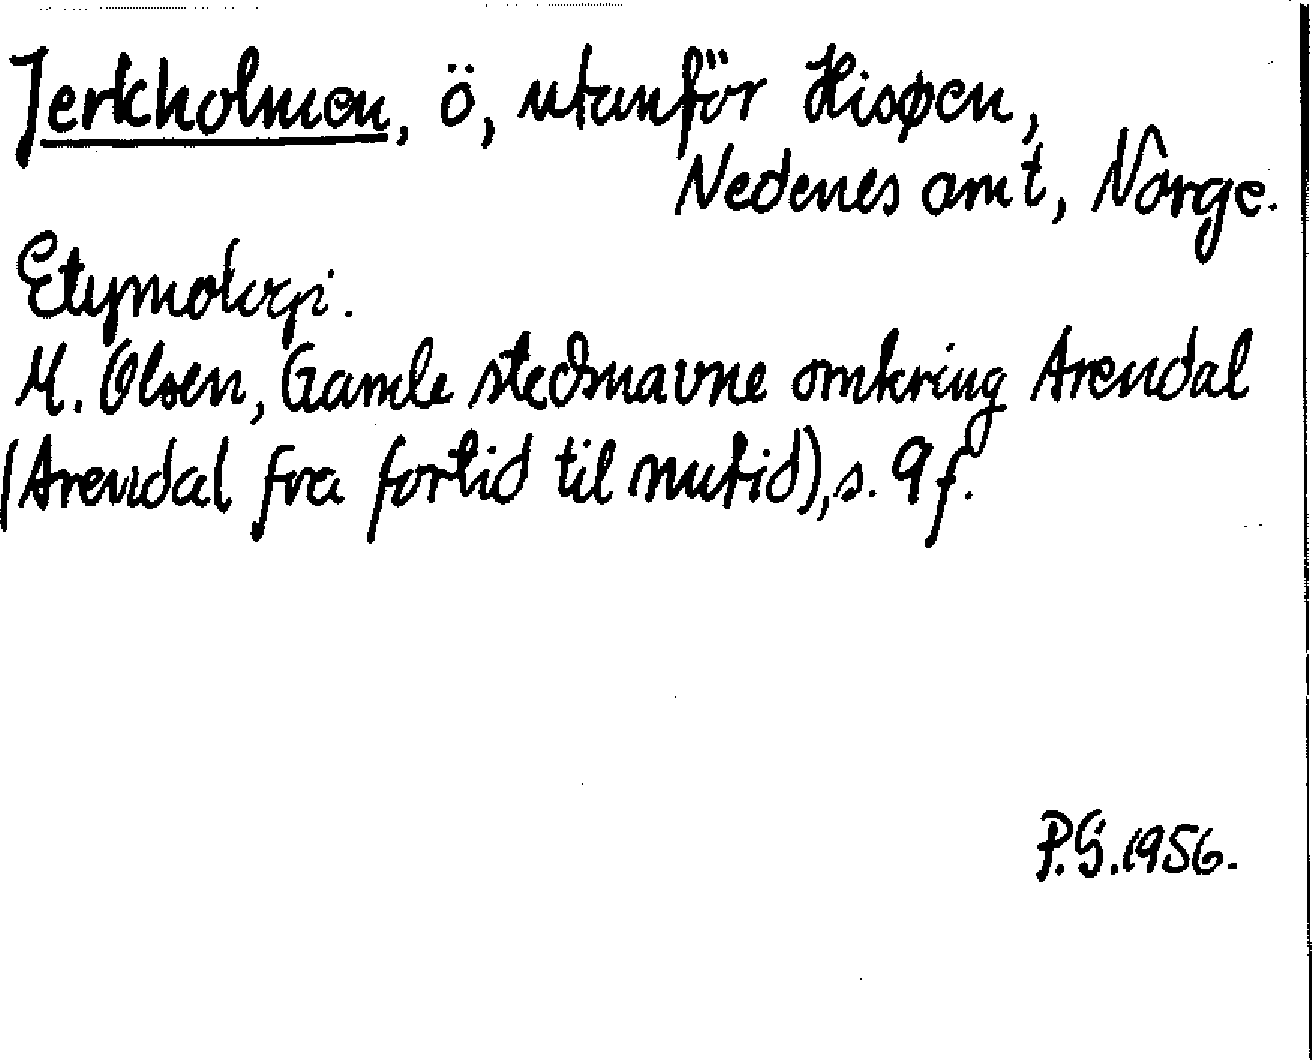 Jerkholmen, ö, utanför Hisøen,
Nedenes amt, Norge.
Etymologi.
M. Olsen, Gamle stedsnavne omkring Arendal
(Arendal fra fortid til nutid), s. 9 f.
P.G. 1956.